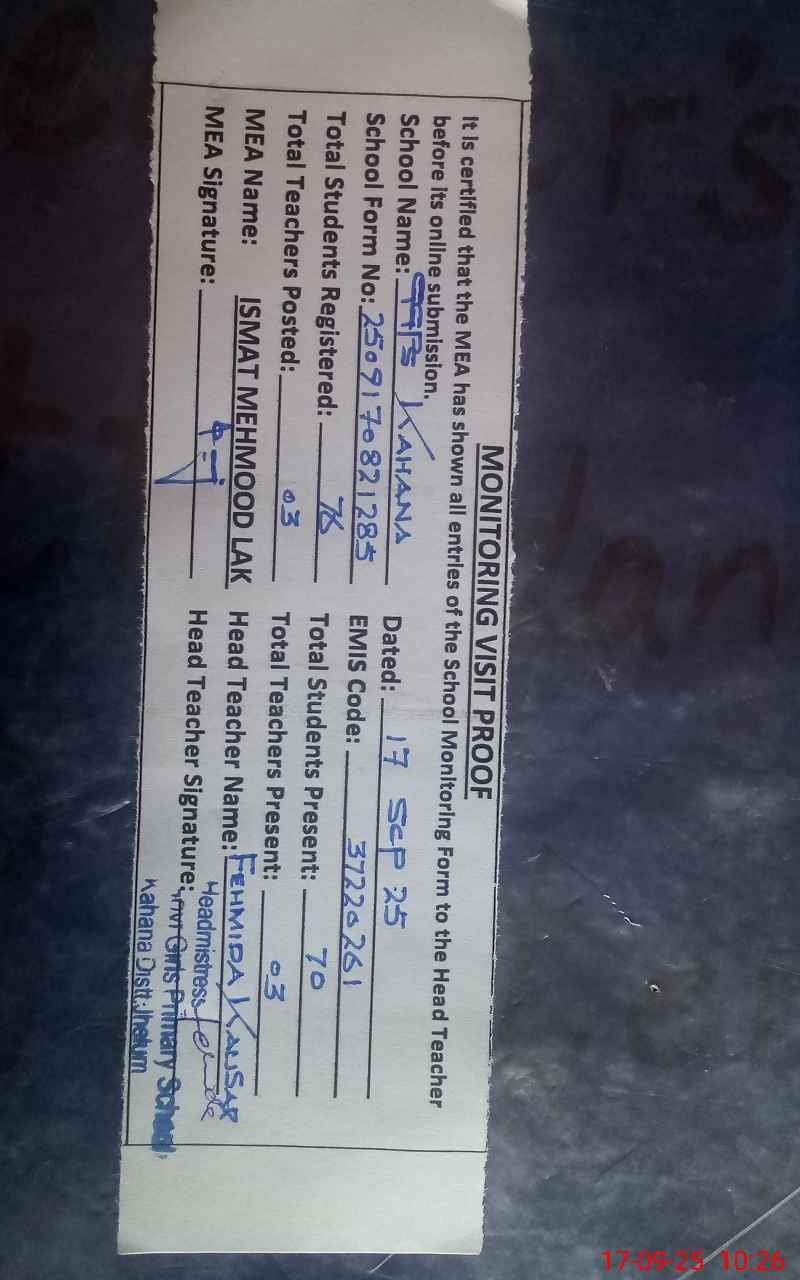 MONITORING VISIT PROOF
It is certified that the MEA has shown all entries of the School Monitoring Form to the Head Teacher
before its online submission.
School Name: GGPS KAHANA Dated: 17 SEP 25
School Form No: 2509170821285 EMIS Code: 37220261
Total Students Registered: 76 Total Students Present: 70
Total Teachers Posted: 03 Total Teachers Present: 03
MEA Name: ISMAT MEHMOOD LAK Head Teacher Name: FEHMIDA KAUSAR
MEA Signature: Head Teacher Signature:
Headmistress
Girls Primary School
Kahana Distt. Jhelum
17-09-25 10:26